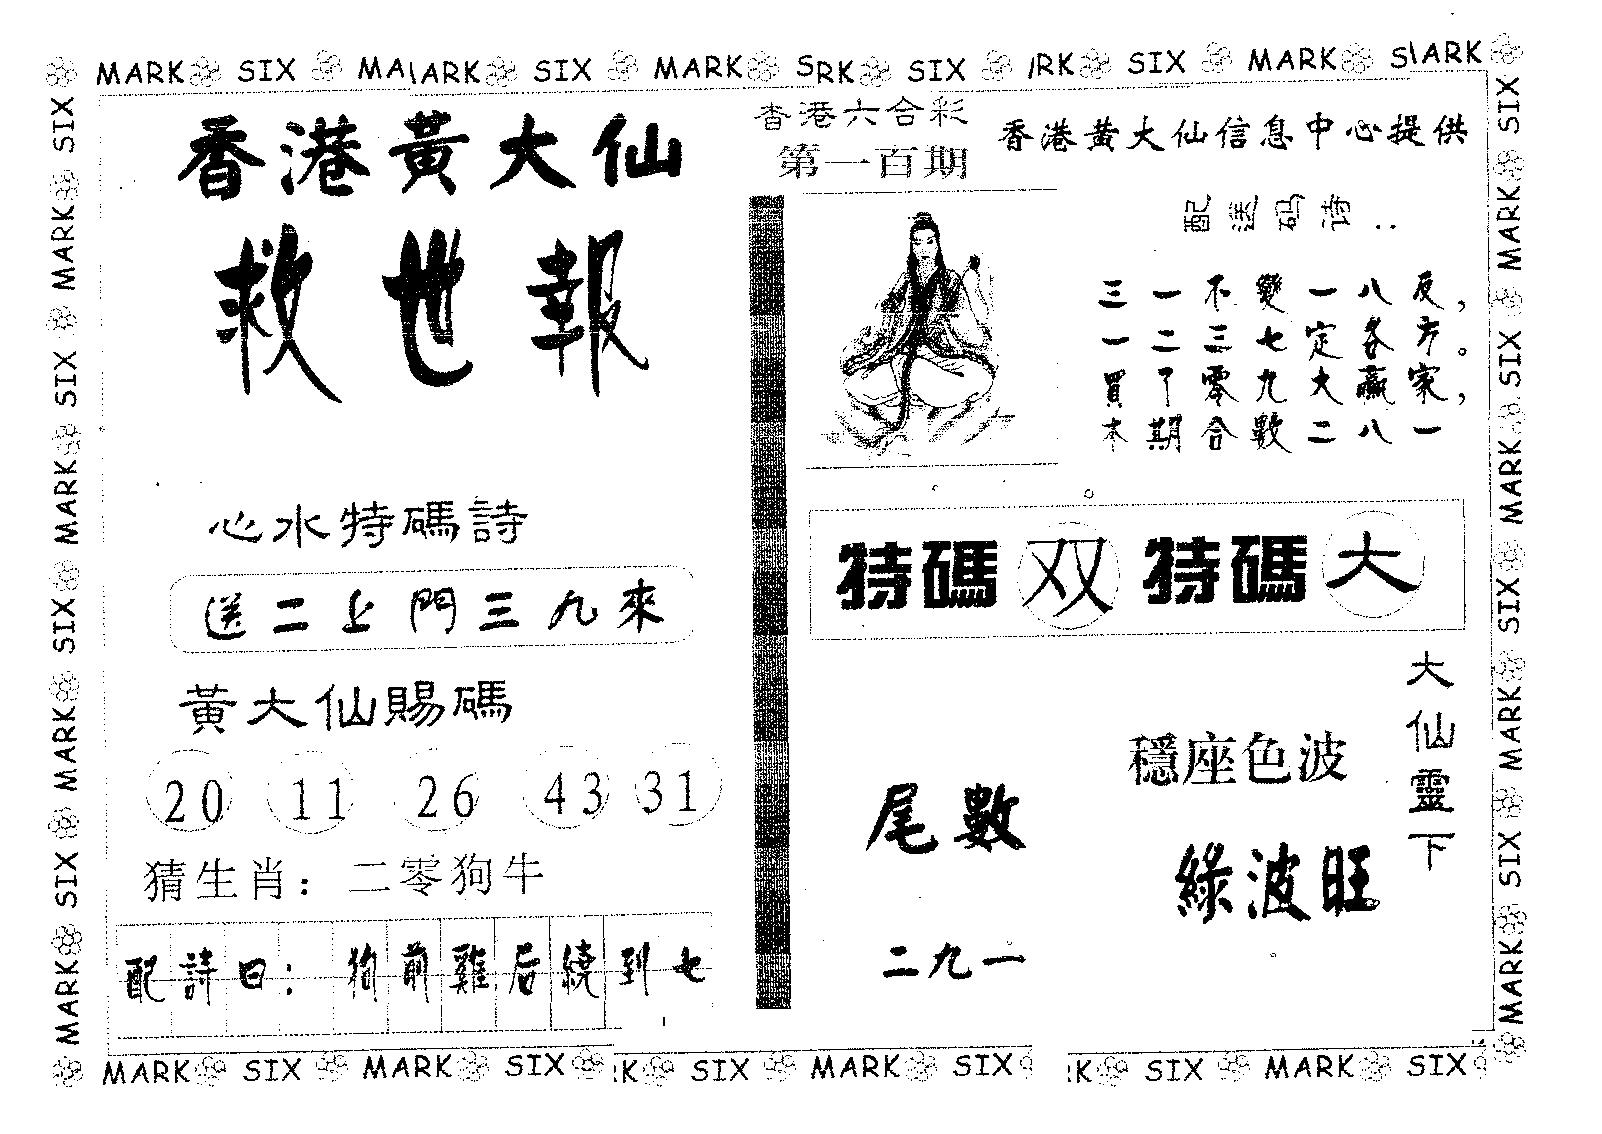 MARK SIX MARK SIX MARK SIX MARK SIX
香港黃大仙
救世報
心水特碼詩
送二上門三九來
黃大仙賜碼
20 11 26 43 31
猜生肖：二零狗牛
配詩曰：狗前雞后繞到七
香港六合彩
第一百期
香港黃大仙信息中心提供
配送码诗..
三一不變一八反，
一二三七定各方。
買了零九大贏家，
本期合數二八一
特碼双 特碼大
大仙靈下
穩座色波
綠波旺
尾數
二九一
MARK SIX MARK SIX MARK SIX MARK SIX